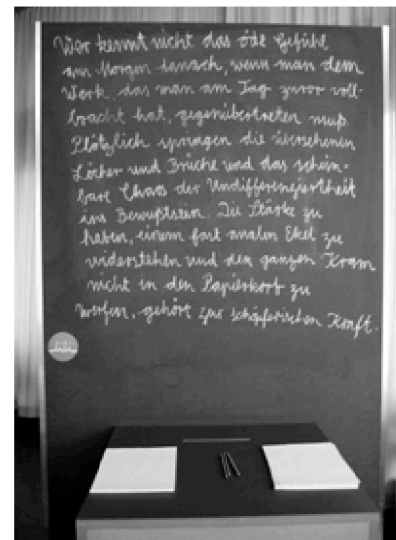 Wer kennt nicht das öde Gefühl
am Morgen danach, wenn man dem
Werk, das man am Tag zuvor voll-
bracht hat, gegenübertreten muß.
Plötzlich springen die übersehenen
Löcher und Brüche und das schein-
bare Chaos der Undifferenziertheit
ins Bewußtsein. Die Stärke zu
haben, einem fast analen Ekel zu
widerstehen und den ganzen Kram
nicht in den Papierkorb zu
werfen, gehört zur schöpferischen Kraft.